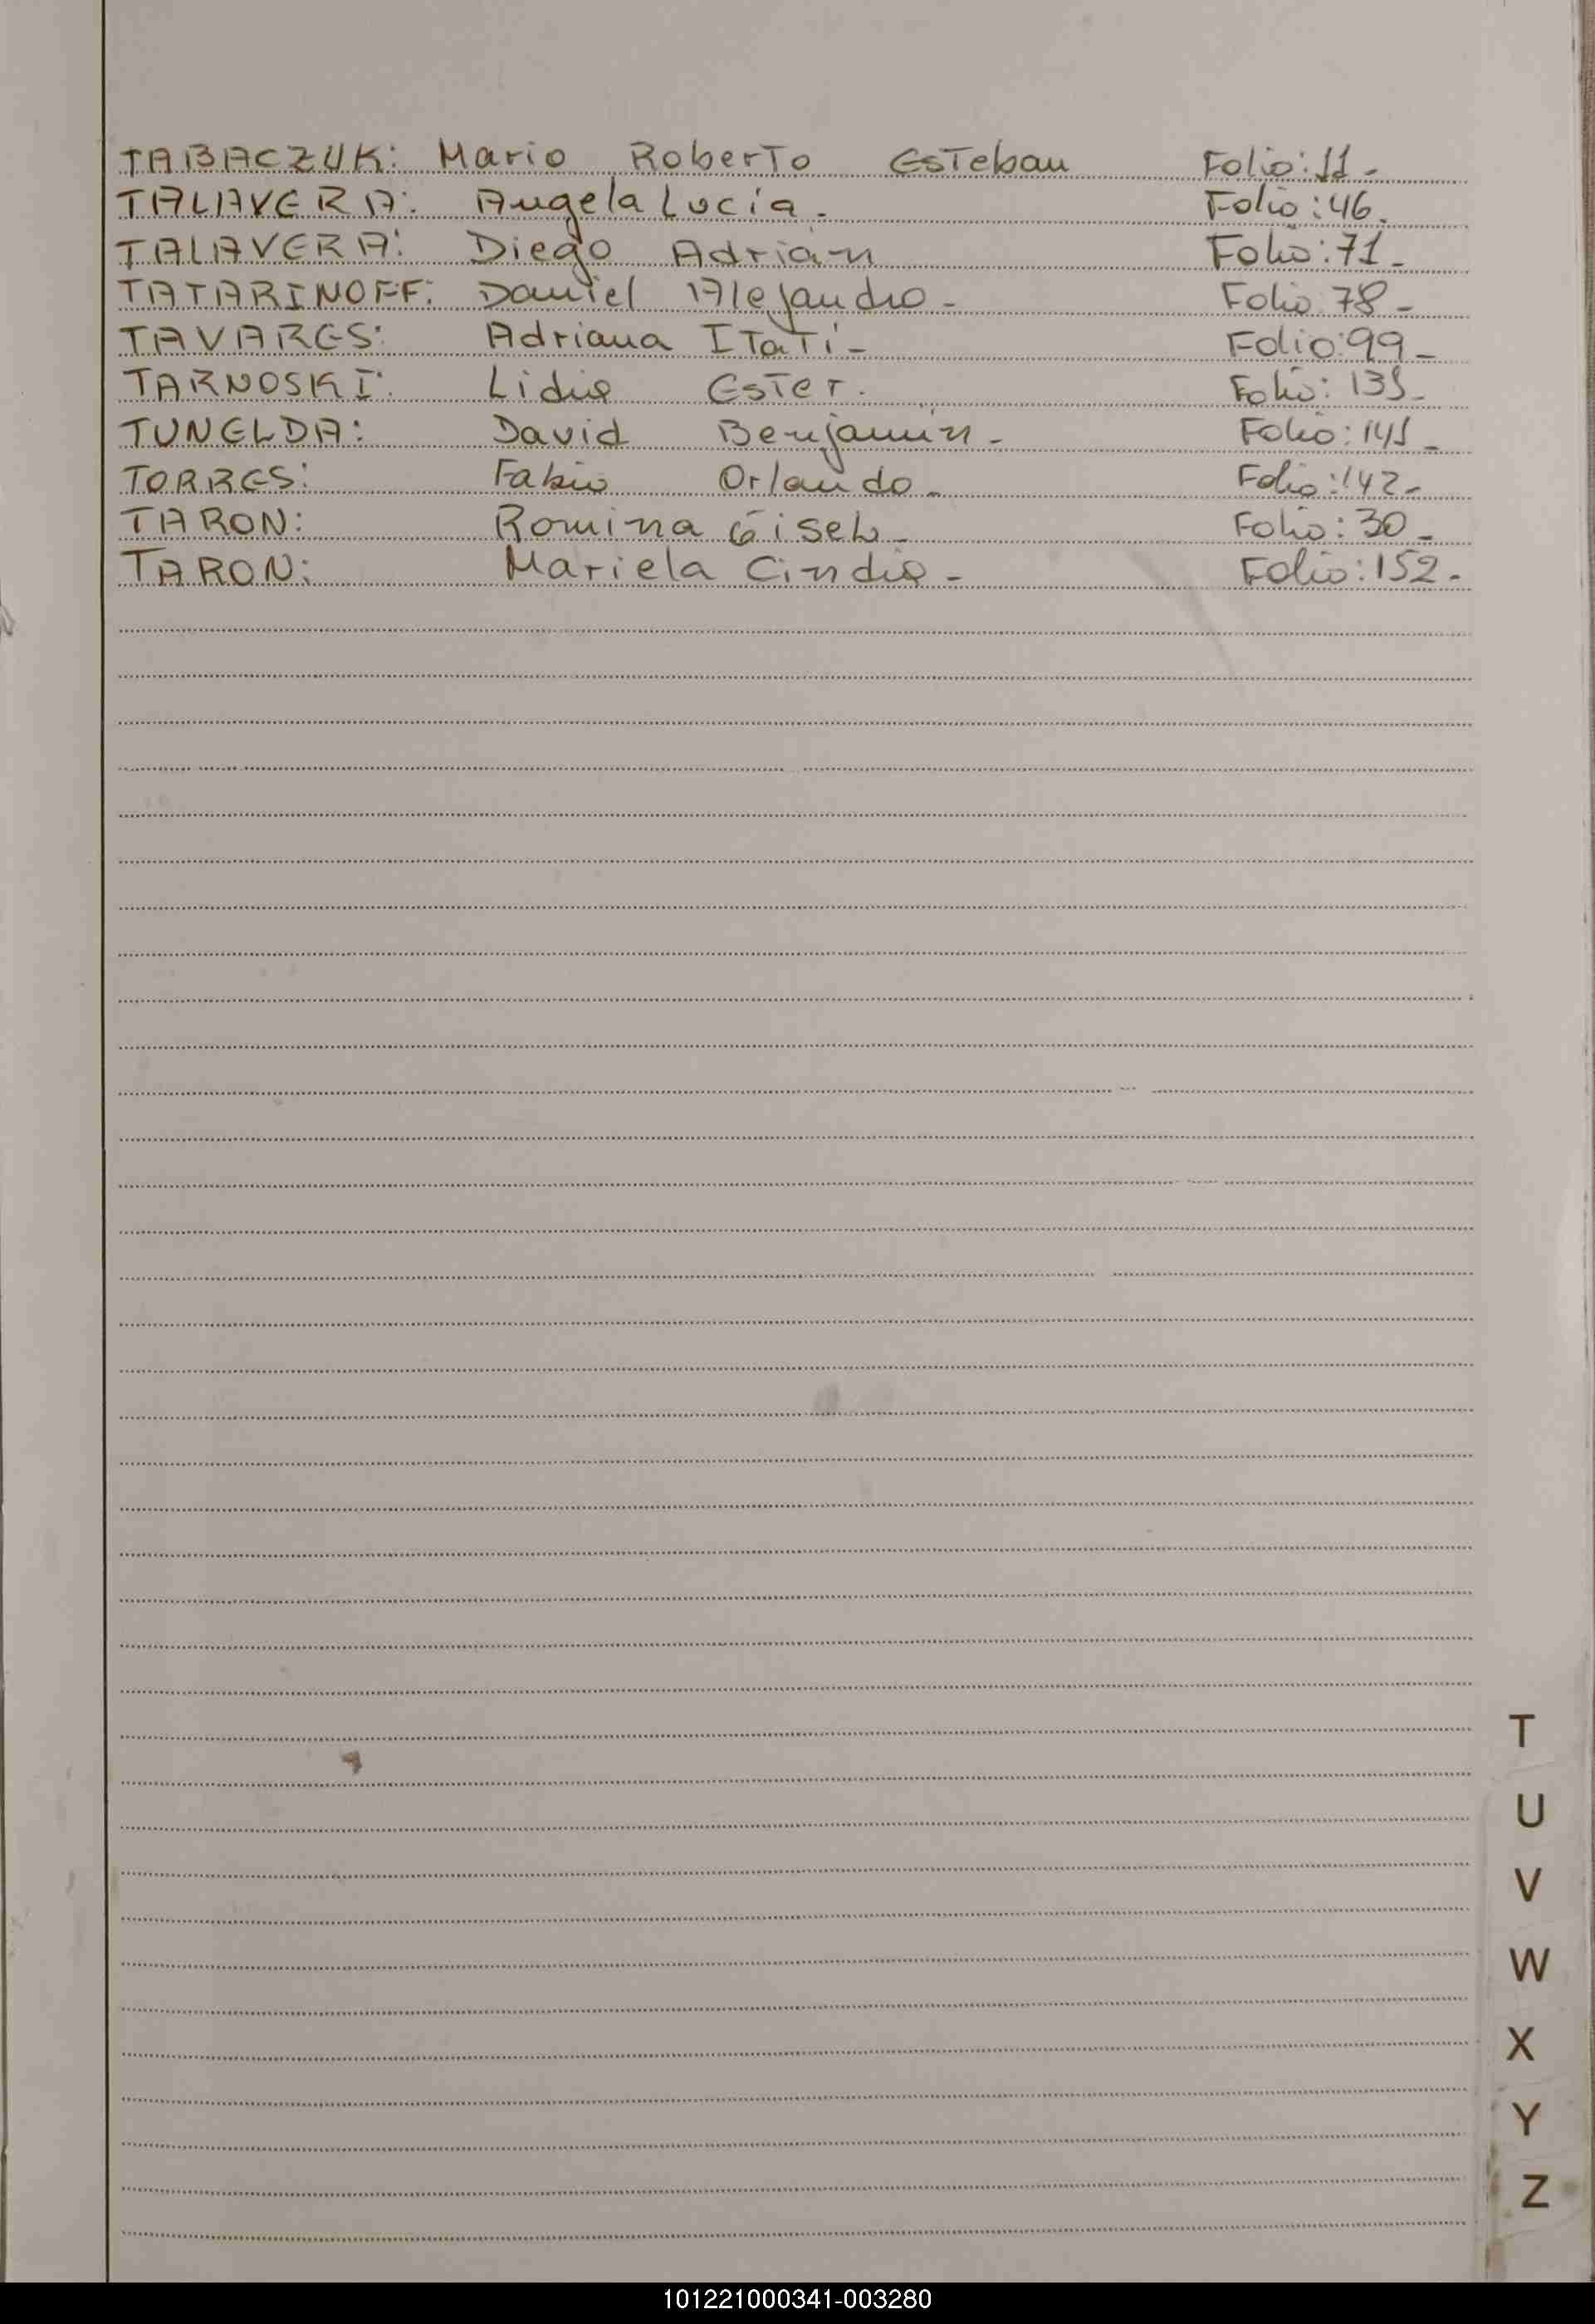 TABACZUK: Mario Roberto Esteban Folio: 11-
TALAVERA: Angela Lucía. Folio: 46.
TALAVERA: Diego Adrián Folio: 71-
TATARINOFF: Daniel Alejandro- Folio: 78-
TAVARES: Adriana ITaTí- Folio: 99-
TARNOSKI: Lidia Ester. Folio: 131-
TUNELDA: David Benjamín- Folio: 141-
TORRES: Fabio Orlando- Folio: 142-
TARON: Romina Gisela- Folio: 30-
TARON: Mariela Cindia- Folio: 152-
T
U
V
W
X
Y
Z
101221000341-003280